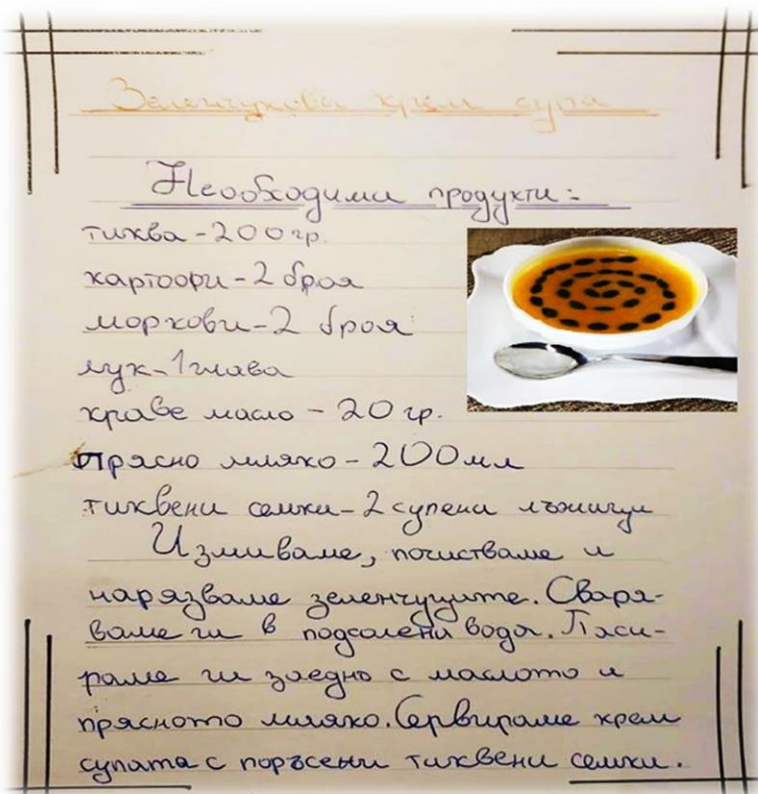 Зеленчукова крем супа
Необходими продукти:
тиква-200гр.
картофи-2 броя
моркови-2 броя
лук-1глава
краве масло-20гр.
прясно мляко-200мл
тиквени семки-2 супени лъжици
Измиваме, почистваме и
нарязваме зеленчуците. Сваря-
ваме ги в подсолени вода. Паси-
раме ги заедно с маслото и
прясното мляко. Сервираме крем
супата с поръсени тиквени семки.